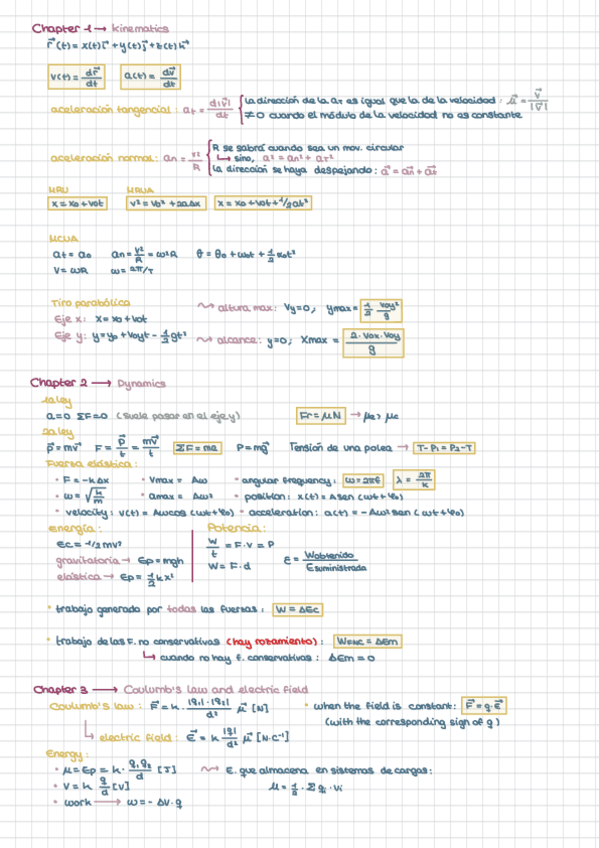 Chapter 1 → Kinematics
r⃗(t) = x(t)i⃗ + y(t)j⃗ + z(t)k⃗
v(t) = dr⃗/dt   a(t) = dv⃗/dt
aceleración tangencial: at = d|v⃗|/dt { La dirección de la at es igual que la de la velocidad: μ⃗ = v⃗/|v⃗|
≠0 cuando el módulo de la velocidad no es constante
aceleración normal: an = v²/R { R se sabrá cuando sea un mov. circular
↳ sino, a² = an² + at²
La dirección se haya despejando: a⃗ = an⃗ + at⃗
MRU   MRUA
x = x0 + v0t   v² = v0² + 2aΔx   x = x0 + v0t + 1/2at²
MCUA
at = a0   an = v²/R = ω²R   θ = θ0 + ω0t + 1/2 α0t²
v = ωR   ω = 2π/T
Tiro parabólico   ⤳ altura max: Vy=0; ymax = 1/2 · v0y²/g
Eje x: x = x0 + v0t
Eje y: y = y0 + v0yt - 1/2 gt²   ⤳ alcance: y=0; Xmax = 2·V0x·V0y/g
Chapter 2 → Dynamics
1a ley
a=0 ΣF=0 (suele pasar en el eje y)   Fr = μN → μe > μc
2a ley
p⃗ = mv⃗   F = p⃗/t = mv⃗/t   ΣF = ma   P = mg⃗   Tensión de una polea → T-P1 = P2-T
Fuerza elástica:
• F = -kΔx   • Vmax = Aω   • angular frequency: ω=2πf   λ = 2π/k
• ω = √k/m   • amax = Aω²   • position: x(t) = A sen(ωt+φ0)
• velocity: v(t) = Aω cos(ωt+φ0)   • acceleration: a(t) = -Aω² sen(ωt+φ0)
Energía:   Potencia:
Ec = 1/2 mv²   W/t = F·v = P
gravitatoria → Ep = mgh   W = F·d   ε = Wobtenido/Esuministrada
elástica → Ep = 1/2 kx²
• trabajo generado por todas las fuerzas: W = ΔEc
• trabajo de las F. no conservativas (hay rozamiento): WFNC = ΔEm
↳ cuando no hay f. conservativas: ΔEm = 0
Chapter 3 → Coulumb's law and electric field
Coulumb's law: F⃗ = k · |q1|·|q2|/d² μ⃗ [N]   • when the field is constant: F⃗ = q·E⃗
(with the corresponding sign of q)
↳ electric field: E⃗ = k |q|/d² μ⃗ [N·C⁻¹]
Energy:
• μ = Ep = k · q1q2/d [J]   ⤳ E. que almacena en sistemas de cargas:
• V = k q/d [V]   μ = 1/2 · Σ qi · vi
• work → w = - ΔV·q